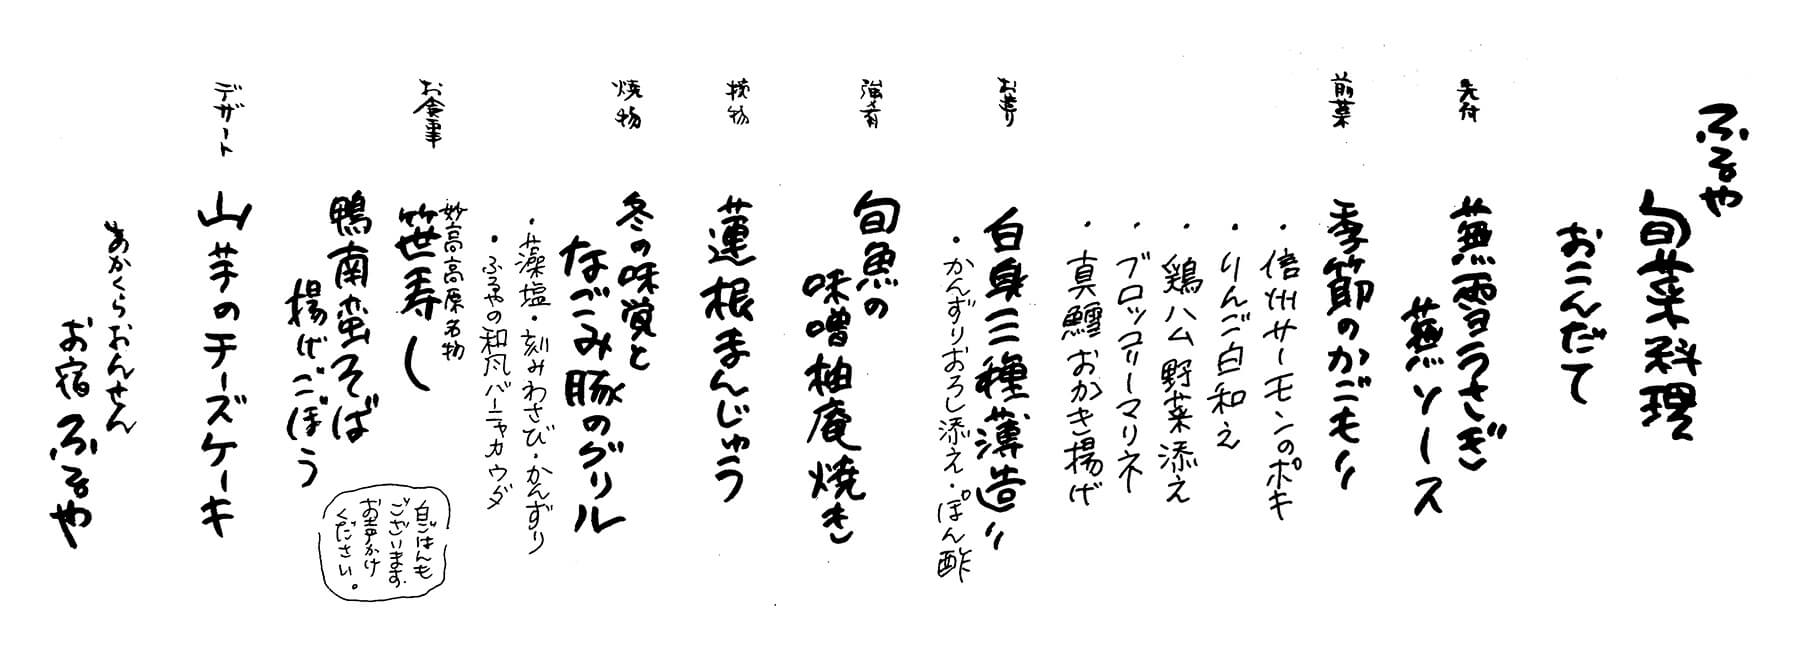 ふるや
旬菜料理
おこんだて
先付
蕪雪うさぎ
蕪ソース
前菜
季節のかごもり
・信州サーモンのポキ
・りんご白和え
・鶏ハム野菜添え
・ブロッコリーマリネ
・真鱈おかき揚げ
お造り
白身三種薄造り
・かんずりおろし添え・ぽん酢
強肴
旬魚の
味噌柚庵焼き
椀物
蓮根まんじゅう
焼物
冬の味覚と
なごみ豚のグリル
・藻塩・刻みわさび・かんずり
・ふるやの和風バーニャカウダ
お食事
妙高高原名物
笹寿し
鴨南蛮そば
揚げごぼう
白ごはんも
ございます。
お声かけ
ください。
デザート
山芋のチーズケーキ
あかくらおんせん
お宿ふるや